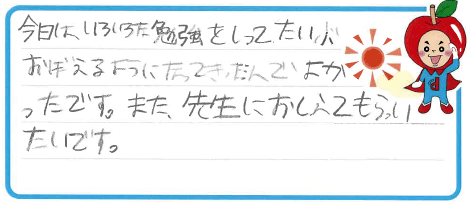 今日は、いろいろな勉強をしってたいぶ
おぼえるようになってきたんでよか
ったです。また、先生におしえてもらい
たいです。